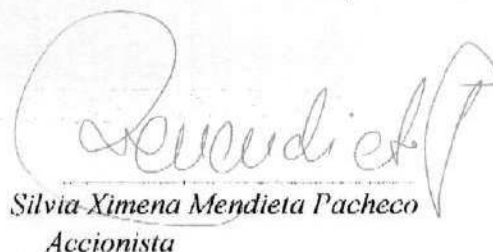 Silvia Ximena Mendieta Pacheco
Accionista